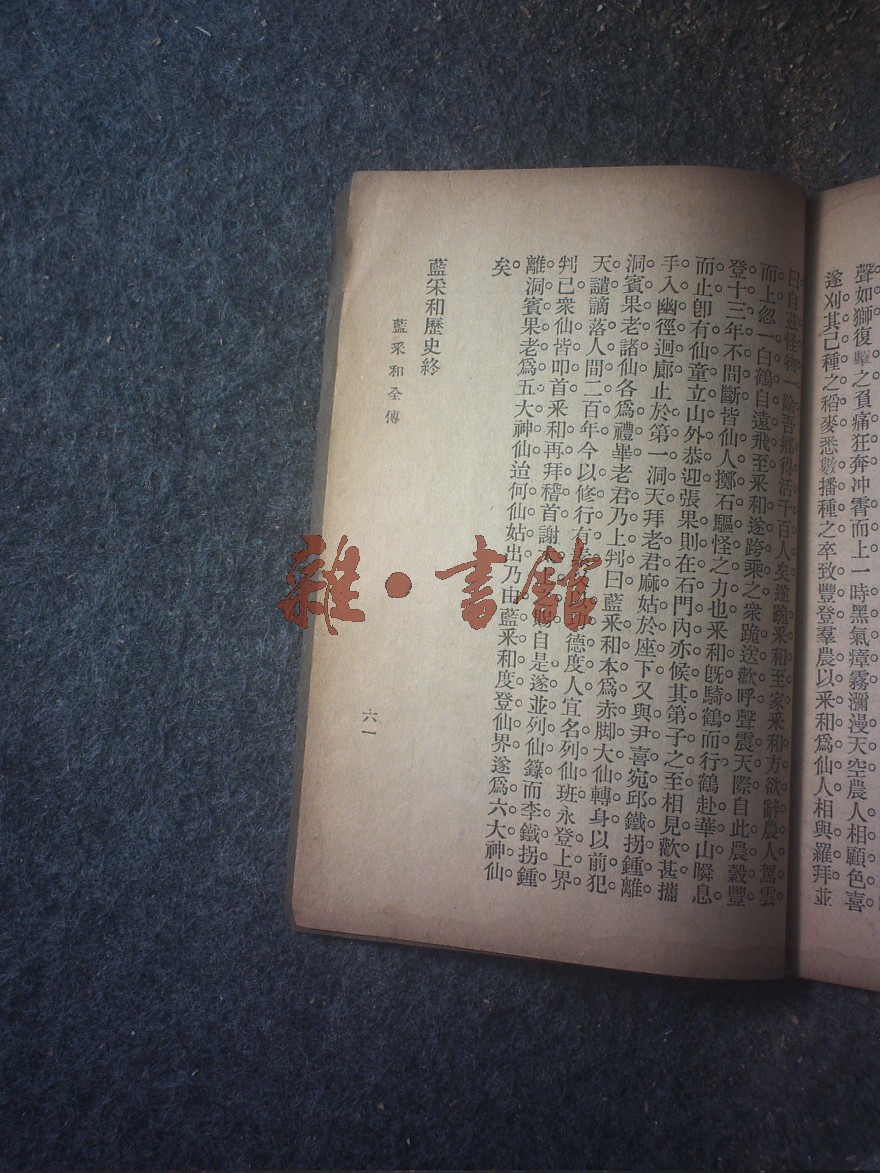 聲如獅復擊之負痛狂奔冲霄而上一時黑氣瘴霧瀰漫天空農人相顧色喜
遂刈其已種之稻麥悉數播種之卒致豐登羣農以釆和爲仙人相與羅拜並
曰自茲怪物一除吾鄉得活千百人矣遂跪釆和至家釆和方欲辭農人駕雲
而上忽一白鶴自遠飛至釆和遂跨乘之衆跪送歡呼聲震天際自此農穀豐
登十三年不間斷皆仙人擲石驅怪之力也釆和旣騎鶴而行鶴赴華山瞬息
而止卽有仙童立山外恭迎張果則在石門內亦候其第子之至相見歡甚攜
手入幽徑迴廊止於第一洞天拜老君麻姑於座下又與尹喜宛邱鐵拐鍾離
洞賓果老諸仙各爲禮畢老君乃上判曰藍釆和本爲赤脚大仙轉身以前犯
天譴謫落人間二百年今以修行有德度人宜名列仙班永登上界
判已衆仙皆叩首釆和再拜稽首謝自是遂並列仙籙而李鐵拐鍾
離洞賓果老爲五大神仙迨何仙姑出乃由藍釆和度登仙界遂爲六大神仙
矣
藍采和歷史終
藍釆和全傳
六一
雜·書館